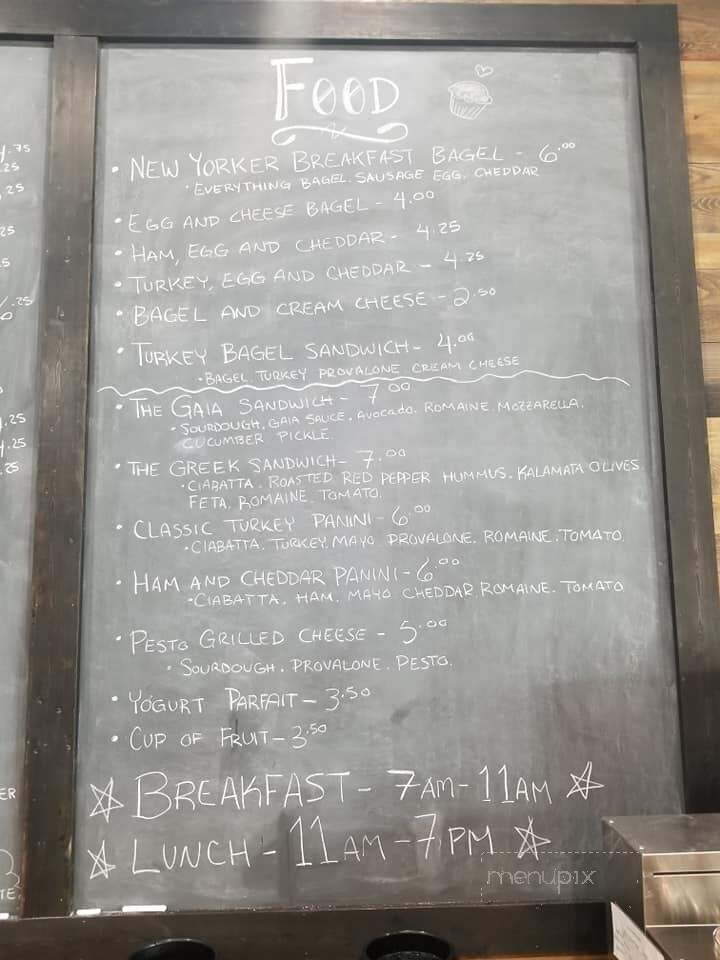 FOOD
• NEW YORKER BREAKFAST BAGEL - 6.00
• EVERYTHING BAGEL. SAUSAGE EGG. CHEDDAR
• EGG AND CHEESE BAGEL - 4.00
• HAM, EGG AND CHEDDAR - 4.25
• TURKEY, EGG AND CHEDDAR - 4.25
• BAGEL AND CREAM CHEESE - 2.50
• TURKEY BAGEL SANDWICH - 4.00
• BAGEL TURKEY PROVALONE CREAM CHEESE
• THE GAIA SANDWICH - 7.00
• SOURDOUGH, GAIA SAUCE. AVOCADO. ROMAINE. MOZZARELLA.
CUCUMBER PICKLE.
• THE GREEK SANDWICH - 7.00
• CIABATTA. ROASTED RED PEPPER HUMMUS. KALAMATA OLIVES
FETA. ROMAINE. TOMATO.
• CLASSIC TURKEY PANINI - 6.00
• CIABATTA. TURKEY. MAYO PROVALONE. ROMAINE. TOMATO.
• HAM AND CHEDDAR PANINI - 6.00
• CIABATTA. HAM. MAYO CHEDDAR ROMAINE. TOMATO
• PESTO GRILLED CHEESE - 5.00
• SOURDOUGH. PROVALONE. PESTO.
• YOGURT PARFAIT - 3.50
• CUP OF FRUIT - 3.50
BREAKFAST - 7AM - 11AM
LUNCH - 11AM - 7PM
menupix